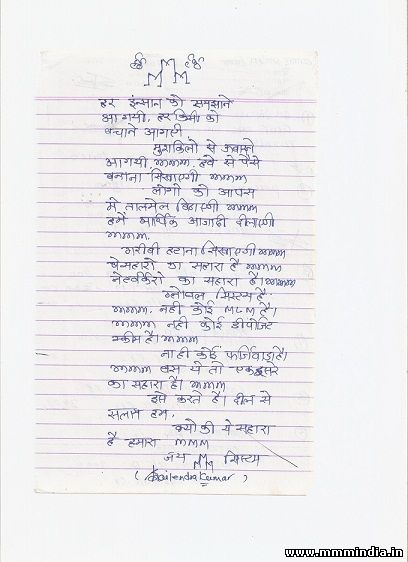 ॐ M ॐ
M M
हर इंसान को समझाने
आ गयी, हर किसी को
बचाने आगएी,
मुशकिलो से बचाने
आगयी, mmm. हवे से पैसे
बनाना सिखाएगी mmm
लोगो को आपस
मे तालमेल बिठाएगी mmm
हमें आर्थिक आजादी दीलाएगी
mmm.
गरीबी हटाना सिखाएगी mmm
बेसहारो का सहारा है mmm
नेटवर्करो का सहारा है। mmm
ग्लोबल सिस्टम है.
mmm. नही कोई MLM है।
mmm नही कोई डीपोजिट
स्कीम है। mmm
ना ही कोई फर्जिवाडा है।
mmm बस ये तो एकदुसरे
का सहारा है। mmm
इसे करते है। दील से
सलाम हम,
क्यो की ये सहारा
है हमारा mmm
जय MMM सिस्टम
(Shailendra Kumar)
www.mmmindia.in